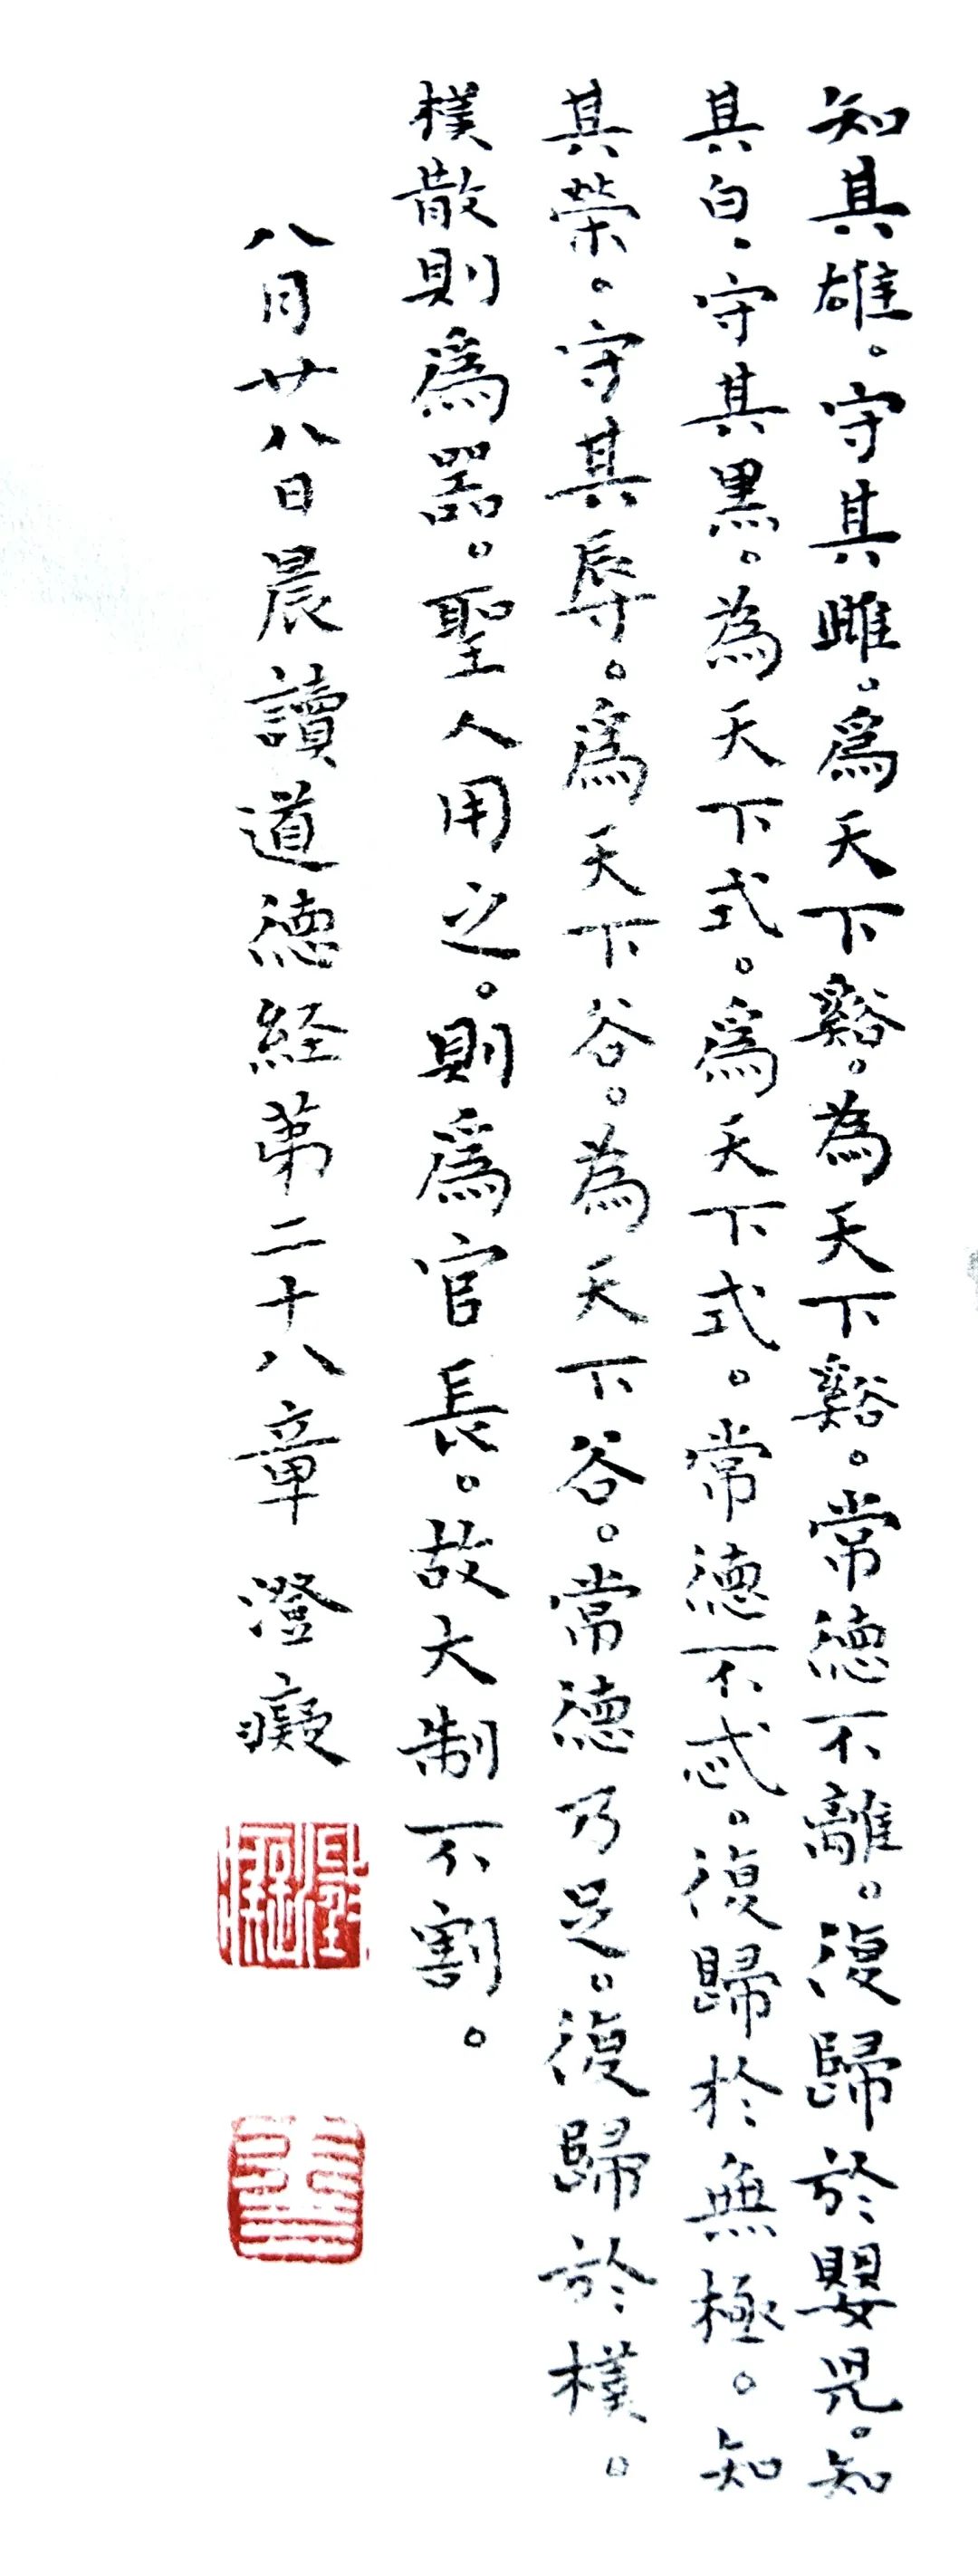 知其雄。守其雌。爲天下谿。為天下谿。常德不離。復歸於嬰兒。知
其白、守其黑。為天下式。爲天下式。常德不忒。復歸於無極。知
其榮。守其辱。爲天下谷。為天下谷。常德乃足。復歸於樸。
樸散則爲器。聖人用之。則爲官長。故大制不割。
八月廿八日晨讀道德経第二十八章 澄癡